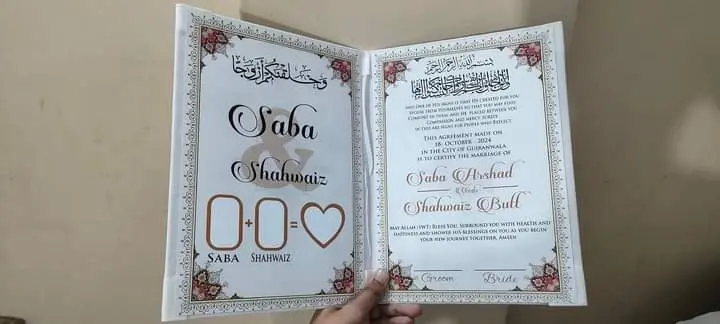 وخلقنكم أزواجا
&
Saba
Shahwaiz
+ =
SABA SHAHWAIZ
بسم الله الرحمن الرحيم
AND ONE OF HIS SIGNS IS THAT HE CREATED FOR YOU
SPOUSE FROM YOURSELVES SO THAT YOU MAY FIND
COMFORT IN THEM. AND HE PLACED BETWEEN YOU
COMPASSION AND MERCY. SURELY
IN THIS ARE SIGNS FOR PEOPLE WHO REFLECT
THIS AGREEMENT MADE ON
18- OCTOBER - 2024
IN THE CITY OF GUJRANWALA
IS TO CERTIFY THE MARRIAGE OF
Saba Arshad
Shahwaiz Butt
MAY ALLAH (SWT) BLESS YOU, SURROUND YOU WITH HEALTH AND
HAPPINESS AND SHOWER HIS BLESSINGS ON YOU AS YOU BEGIN
YOUR NEW JOURNEY TOGETHER, AMEEN
Groom Bride